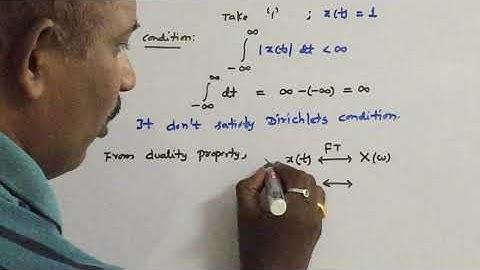 Take '1' ; x(t) = 1
Condition:
∫_{-∞}^{∞} |x(t)| dt < ∞
∫_{-∞}^{∞} dt = ∞ -(-∞) = ∞
It don't satisfy Dirichlets condition.
From duality property, x(t) ⟷ X(ω)
FT
⟷